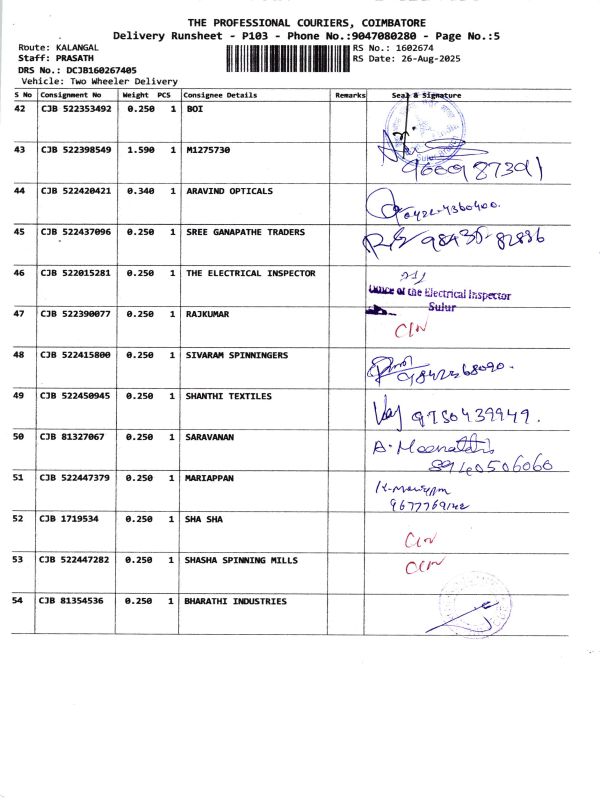 THE PROFESSIONAL COURIERS, COIMBATORE
Delivery Runsheet - P103 - Phone No.:9047080280 - Page No.:5
Route: KALANGAL RS No.: 1602674
Staff: PRASATH RS Date: 26-Aug-2025
DRS No.: DCJB160267405
Vehicle: Two Wheeler Delivery
S No Consignment No Weight PCS Consignee Details Remarks Seal & Signature
42 CJB 522353492 0.250 1 BOI
43 CJB 522398549 1.590 1 M1275730
9600987391
44 CJB 522420421 0.340 1 ARAVIND OPTICALS
0422-4360400.
45 CJB 522437096 0.250 1 SREE GANAPATHE TRADERS
98435-82836
46 CJB 522015281 0.250 1 THE ELECTRICAL INSPECTOR
Office of the Electrical Inspector
Sulur
47 CJB 522390077 0.250 1 RAJKUMAR
48 CJB 522415800 0.250 1 SIVARAM SPINNINGERS
9842268090.
49 CJB 522450945 0.250 1 SHANTHI TEXTILES
9750439949.
50 CJB 81327067 0.250 1 SARAVANAN
A. Meenatchi
8940506060
51 CJB 522447379 0.250 1 MARIAPPAN
52 CJB 1719534 0.250 1 SHA SHA
53 CJB 522447282 0.250 1 SHASHA SPINNING MILLS
54 CJB 81354536 0.250 1 BHARATHI INDUSTRIES